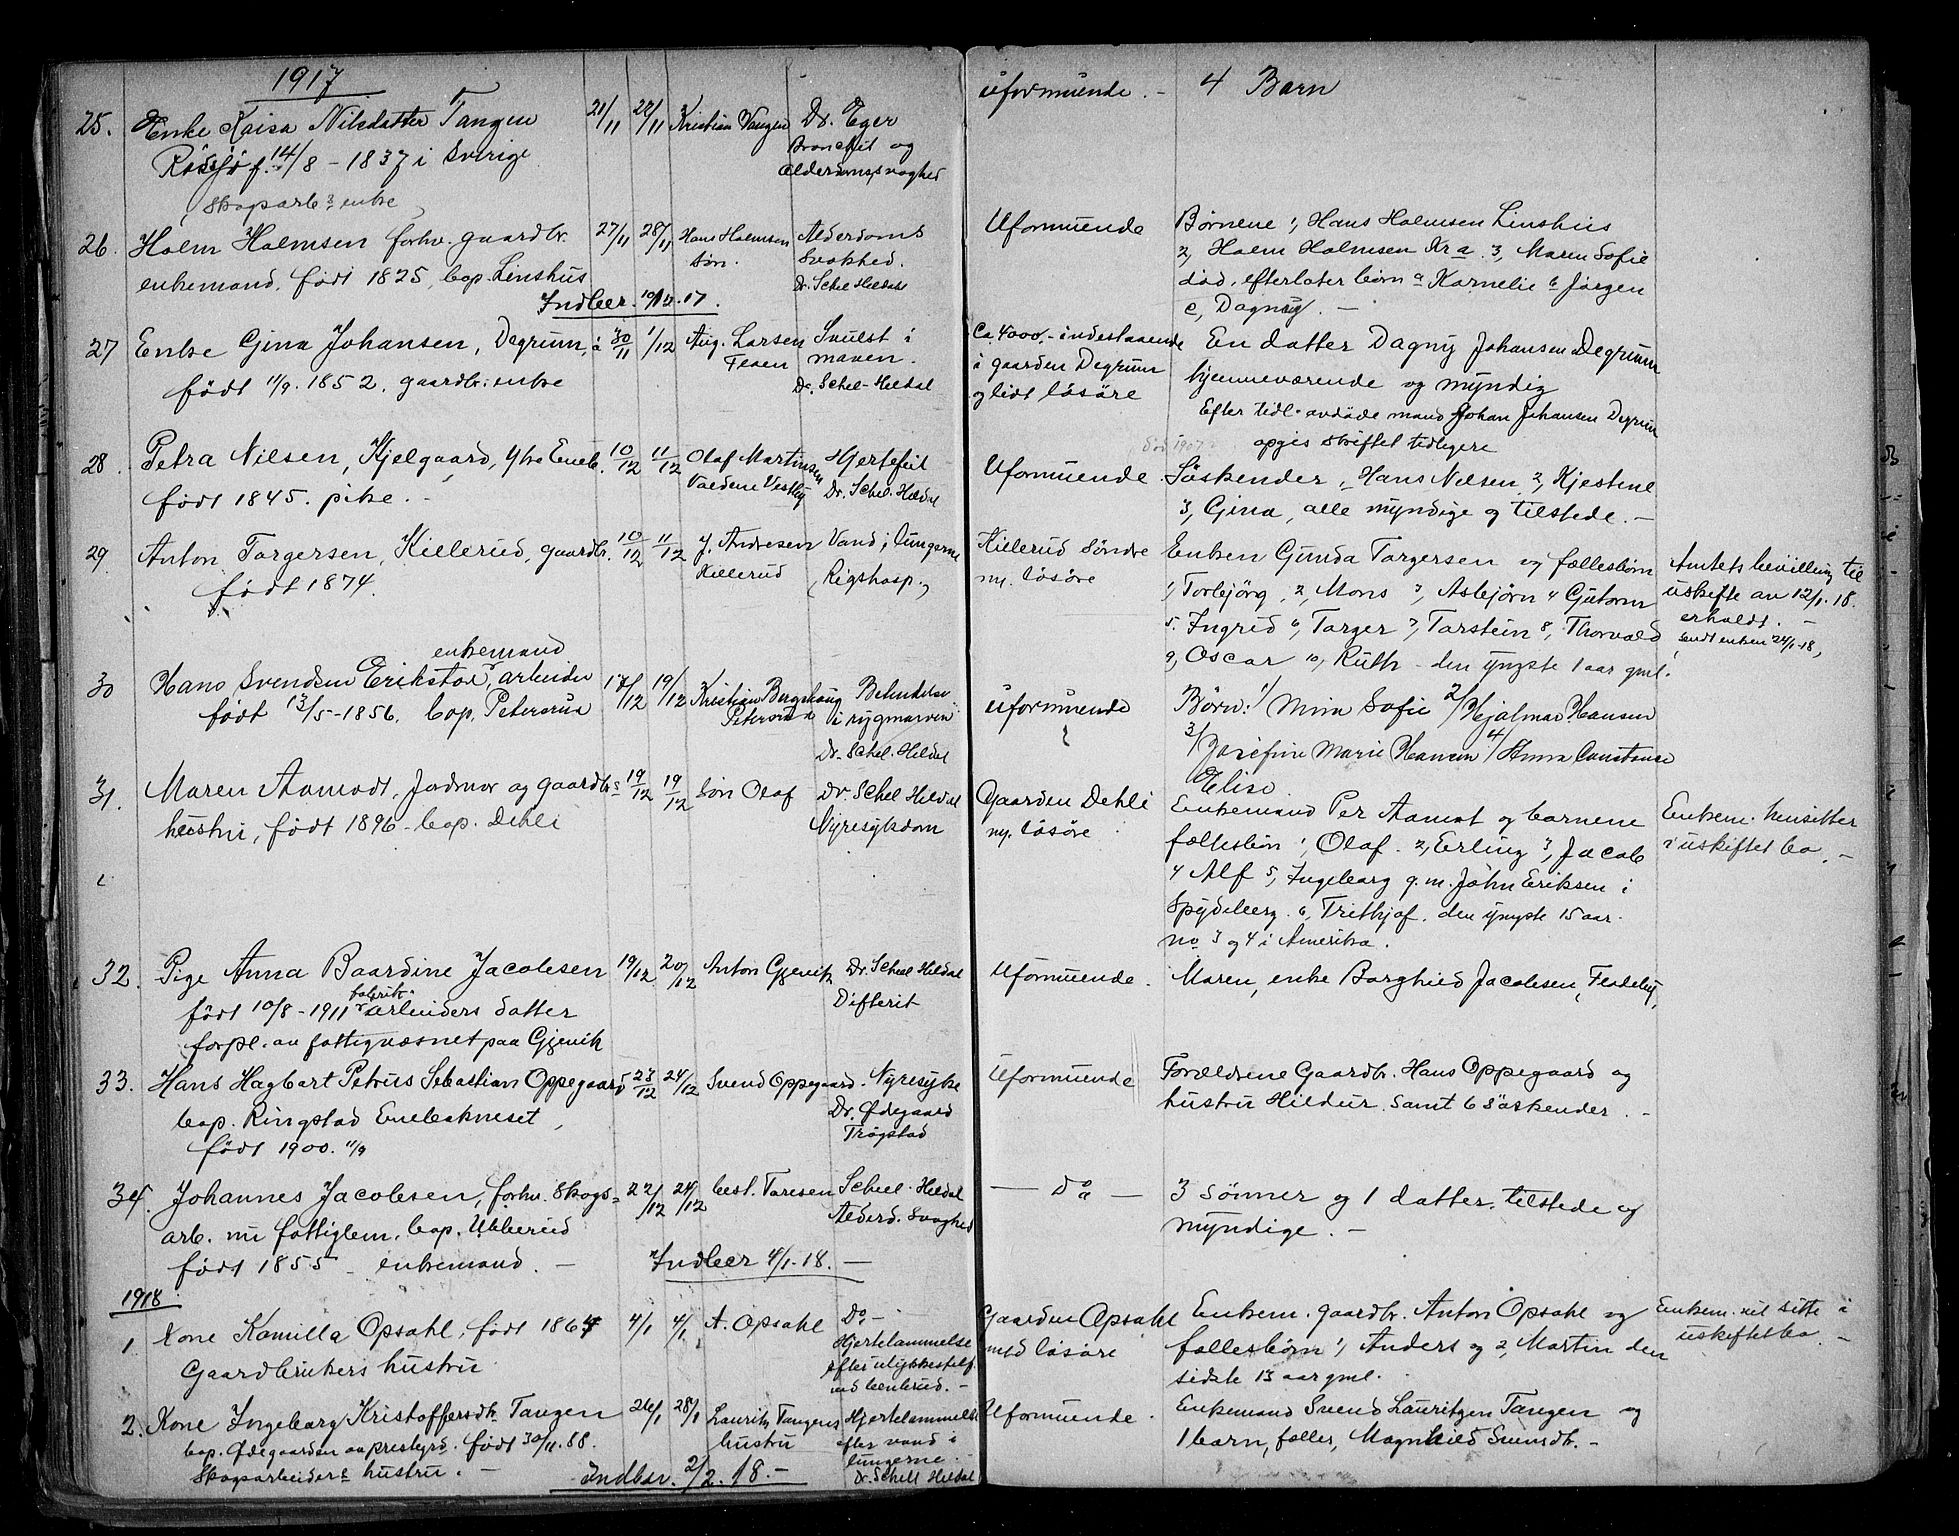 1917
25. Enke Kaisa Nilsdatter Tangen 21/11 28/11 Kristian Tangen Dr. Eger uformuende. - 4 Barn
Rösjö f. 14/8 - 1837 i Sverige Bronchit og
Alderdomssvaghed
(Skogsarb. enke)
26. Holm Holmsen forhv. gaardbr. 27/11 28/11 Hans Holmsen Alderdoms Uformuende Børnene 1, Hans Holmsen Linshus
enkemand, født 1825, bop. Linshus søn. svakhed. 2, Holm Holmsen Kra. 3, Maren Sofie
Dr. Schel Hildal død, efterlater børn a Kornelie b Jørgen
Indber. 10/12.17. c, Dagny. -
27 Enke Gina Johansen, Degrum, 30/11 1/12 Aug. Larsen Svulst i Ca 4000,- indestaaende En datter Dagny Johansen Degrum
født 11/9. 1852. gaardbr. enke Feaen maven. i gaarden Degrum hjemmeværende og myndig
Dr. Schel-Hildal og lidt løsøre Efter tidl. avdøde mand Johan Johansen Degrum
død 1907 opgis skiftet tidligere
28. Petra Nilsen, Kjelgaard, Ytre Eneb. 10/12 11/12 Olaf Martinsen Hjertefeil Uformuende Søskender 1, Hans Nilsen 2, Kjestine
født 1845. pike. - Valdene Vestby Dr. Schel. Hildal 3, Gina, alle myndige og tilstede. -
29. Anton Torgersen, Killerud, gaardbr. 10/12 11/12 J. Andresen Vand i lungerne Killerud Søndre Enken Gunda Torgersen og fællesbørn Amtets bevilling til
født 1874. Killerud (Rigshosp.) m. løsøre 1, Torbjörg, 2, Mons 3, Asbjørn 4 Guttorm uskifte av 12/1.18.
5. Ingrid 6, Torger 7, Torstein 8, Thorvald erholdt. -
9, Oscar 10, Ruth - den yngste 1 aar gml. Sendt enken 24/1-18,
enkemand
30 Hans Svendsen Erikstad, arbeider 17/12 19/12 Kristian Bergshaug Betændelse uformuende Børn: 1/ Mina Sofie 2/ Hjalmar Hansen
født 13/5-1856. bop. Petersrud Petersrud i rygmarven 3/ Josefine Marie Hansen 4/ Anna Constanse
Dr. Schel. Hildal Elise
31. Maren Aamodt, Jordmor og gaardbr. 19/12 19/12 Søn Olaf Dr. Schel Hildal Gaarden Dehli Enkemand Per Aamot og barnene Enkem. hensitter
hustru, født 1896 - bop. Dehli Nyresykdom m. løsøre fællesbørn 1, Olaf. 2, Erling 3, Jacob i uskiftet bo. -
4 Alf 5, Ingeborg g. m. John Eriksen i
Spydeberg. 6, Frithjof. den yngste 15 aar.
no 3 og 4 i Amerika.
32. Pige Anna Baardine Jacobsen 19/12 20/12 Anton Gjevik Dr. Scheel Hildal Uformuende. Maren, enke Borghild Jacobsen, Fladeby,
født 10/8 - 1911 fabrik-arbeiders datter Difterit
forpl. av fattigvæsnet paa Gjevik
33. Hans Hagbart Petrus Sebastian Oppegaard 23/12 24/12 Svend Oppegaard. Nyresyke Uformuende Forældrene Gaardbr. Hans Oppegaard og
bop. Ringstad Enebakneset, Dr. Ødegaard hustru Hildur. samt 6 Søskender. -
født 1900. 11/9 Trøgstad
34. Johannes Jacobsen, forhv. skogs- 22/12 24/12 best. Taresen Scheel. Hildal - Do - 3 Sønner og 1 datter. tilstede og
arb. nu fattiglem. bop. Ubberud Alderd. Svaghed myndige. -
født 1855 - enkemand. - Indber 4/1-18. -
1918
1. Kone Kamilla Opsahl, født 1864 4/1 4/1 A. Opsahl Do - Gaarden Opsahl Enkem. gaardbr. Anton Opsahl og Enkem. vil sitte i
Gaardbrukers hustru Hjertelammelse med løsøre fællesbørn 1, Anders og 2, Martin den uskiftet bo. -
efter ulykkestilf. sidste 13 aar gml.
ved benbrud. -
2. Kone Ingeborg Kristoffersdtr. Tangen 26/1 28/1 Lauritz Tangens Hjertelammelse Uformuende. Enkemand Svend Lauritzen Tangen og
bop. Ødegaarden av prestgrd. født 30/11.88. hustru efter vand i 1 barn, fælles, Magnhild Svendsdtr. -
Skogsarbeiders hustru. - lungerne. -
Indber. 2/2.18. - Dr. Schell Hildal